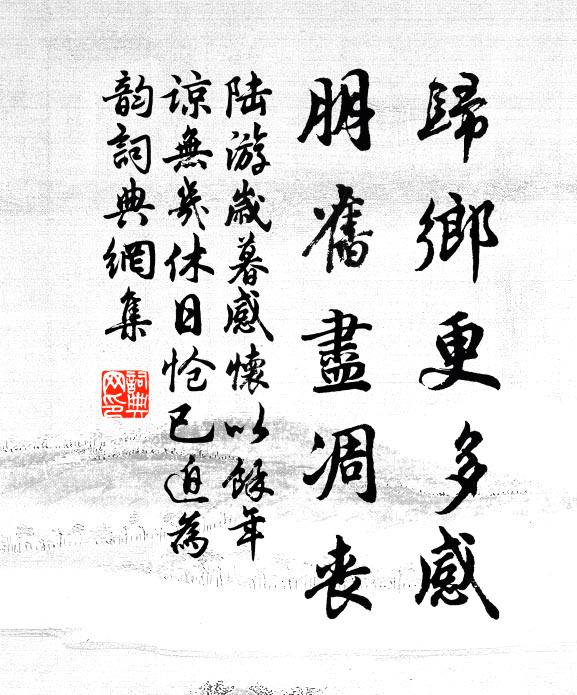 歸鄉更多感
朋舊盡凋喪
陸游歲暮感懷以餘年
諒無幾休日愴已迫為
韵詞典網集
詞典
网印